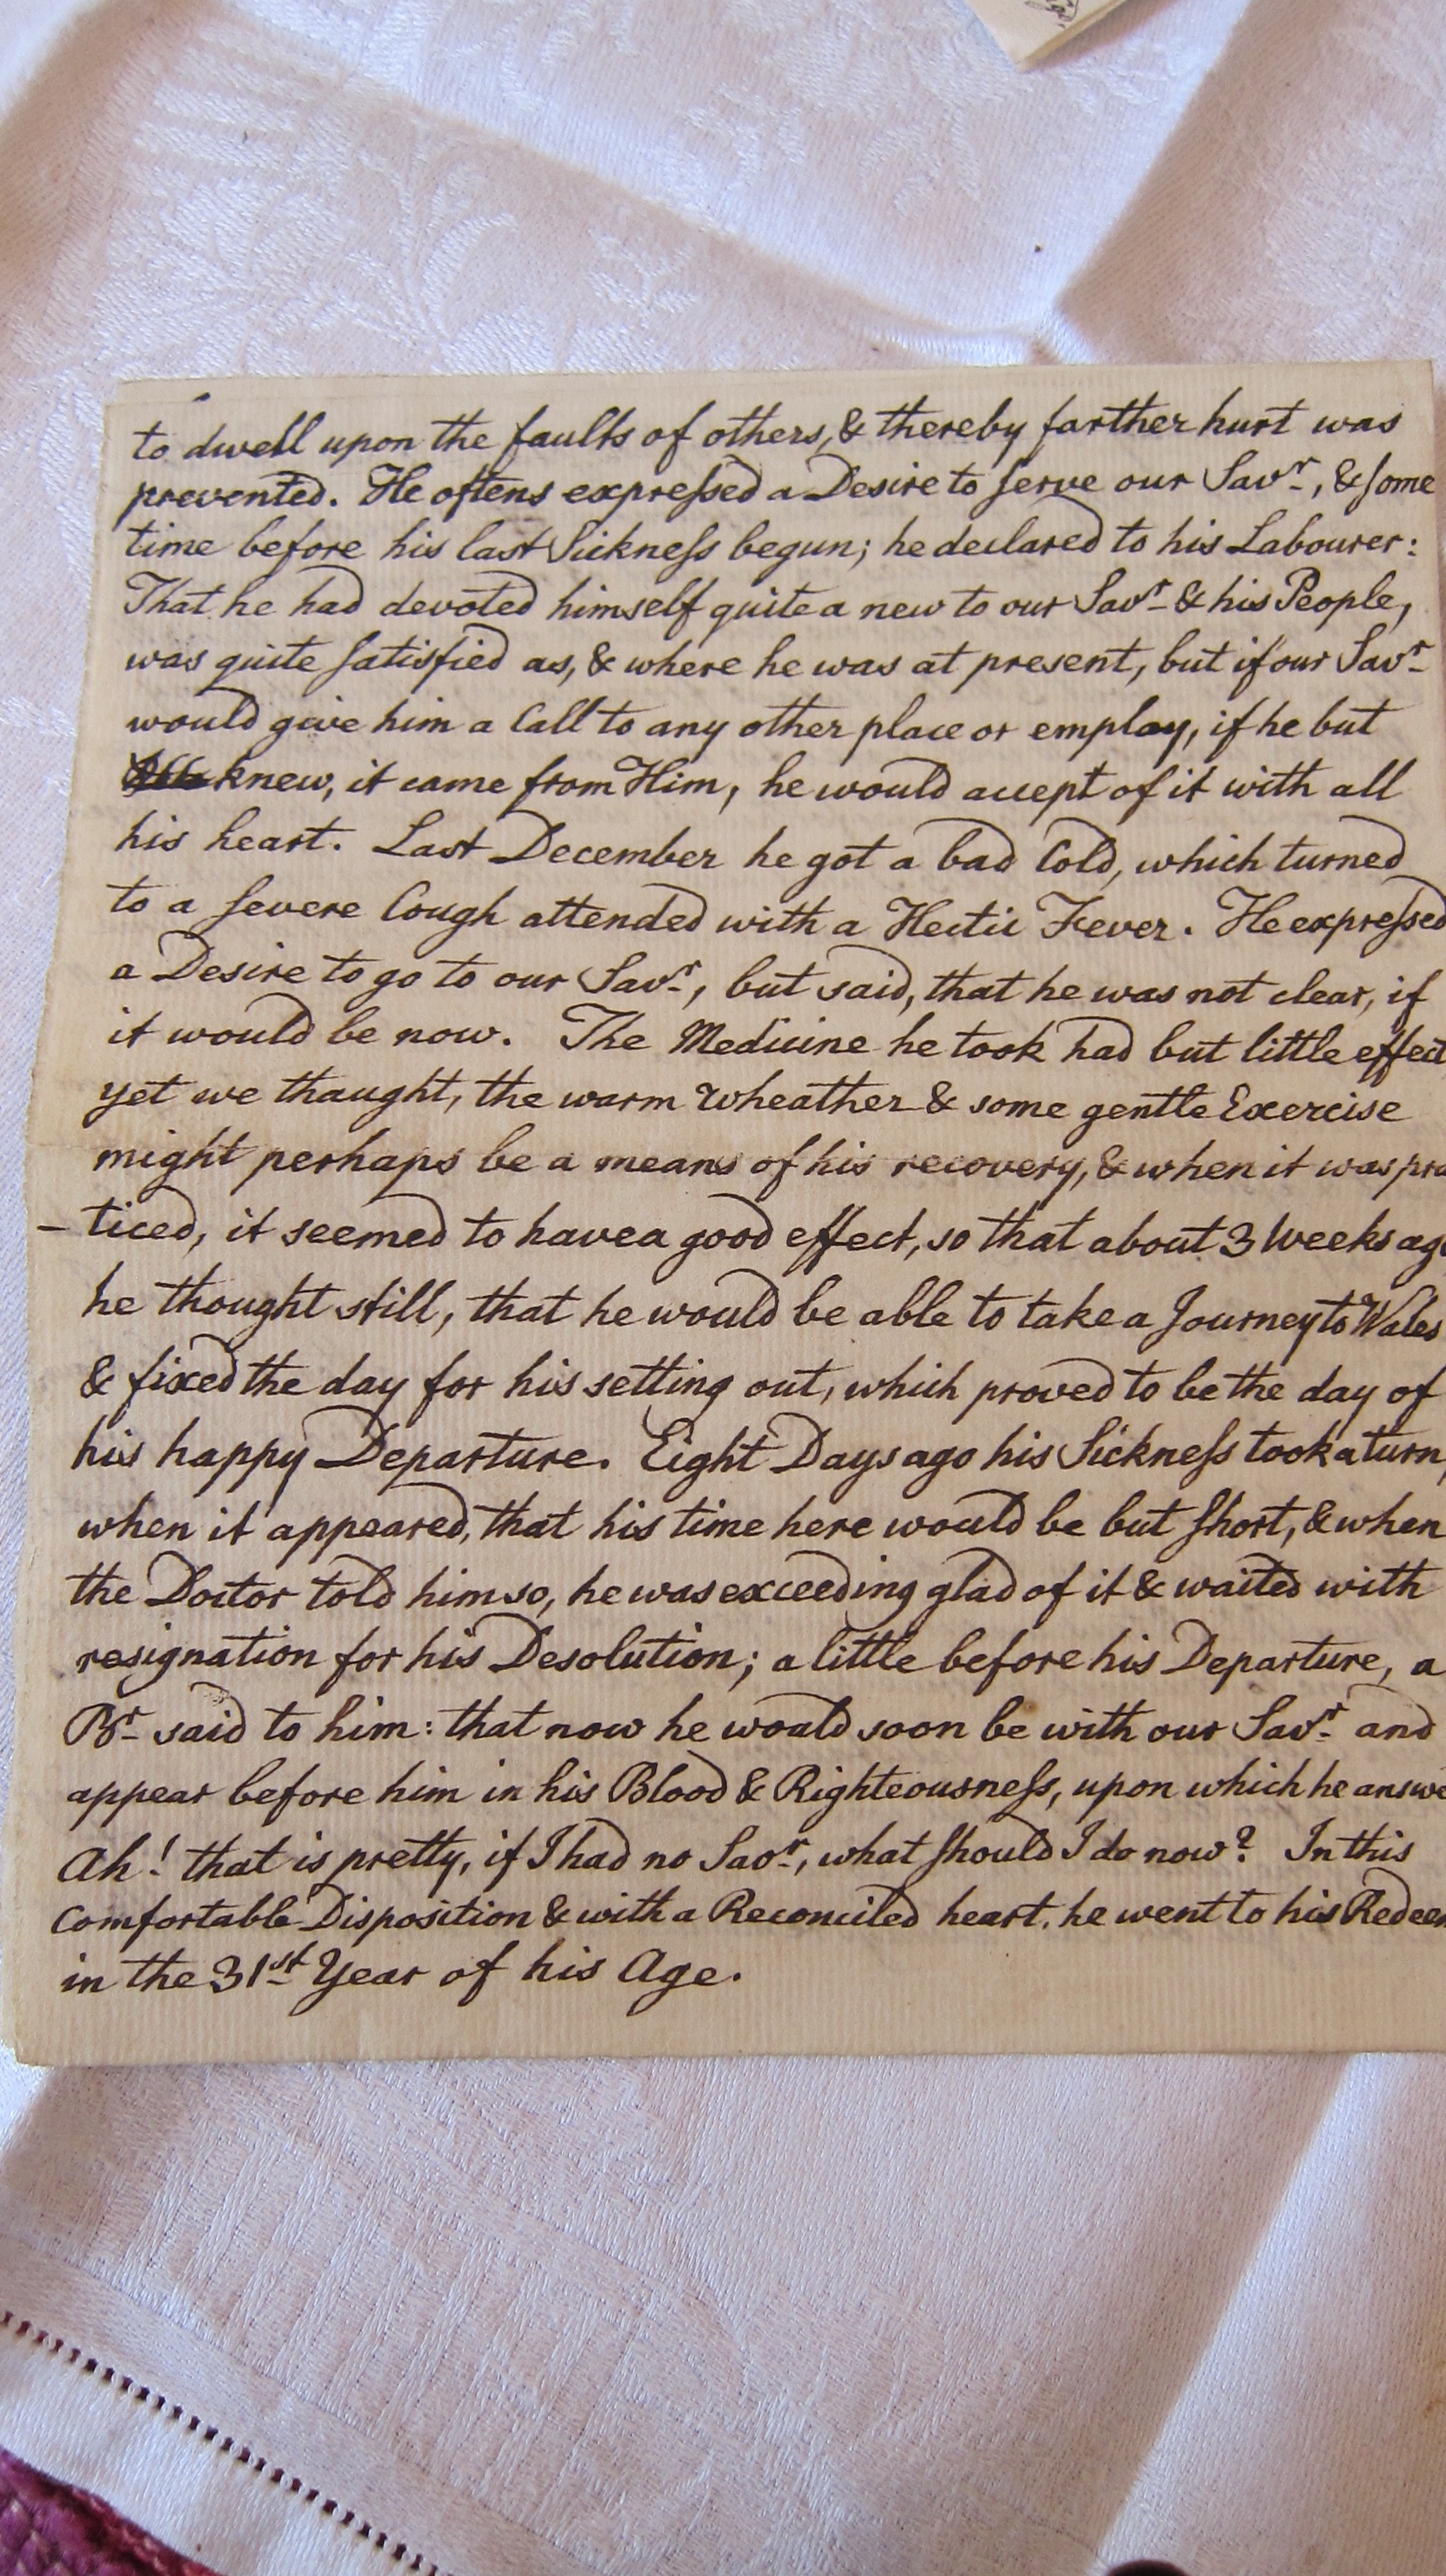 to dwell upon the faults of others, & thereby farther hurt was
prevented. He oftens expreſsed a Desire to ſerve our Savʳ, & ſome
time before his last Sickneſs begun; he declared to his Labourer:
That he had devoted himself quite a new to our Savʳ & his People,
was quite ſatisfied as, & where he was at present, but if our Savʳ
would give him a Call to any other place or employ, if he but
knew, it came from Him, he would accept of it with all
his heart. Last December he got a bad Cold, which turned
to a ſevere Cough attended with a Hectic Fever. He expreſsed
a Desire to go to our Savʳ, but said, that he was not clear, if
it would be now. The Medicine he took had but little effect
yet we thaught, the warm Wheather & some gentle Exercise
might perhaps be a means of his recovery, & when it was pra
–ticed, it seemed to have a good effect, so that about 3 Weeks ago
he thought still, that he would be able to take a Journey to Wales
& fixed the day for his setting out, which proved to be the day of
his happy Departure. Eight Days ago his Sickneſs took a turn,
when it appeared, that his time here would be but ſhort, & when
the Doctor told him so, he was exceeding glad of it & waited with
resignation for his Desolution; a little before his Departure, a
Bʳ said to him: that now he woald soon be with our Savʳ and
appear before him in his Blood & Righteousneſs, upon which he answe
Ah! that is pretty, if I had no Savʳ, what ſhould I do now? In this
Comfortable Disposition & with a Reconciled heart, he went to his Redeem
in the 31ˢᵗ Year of his Age.